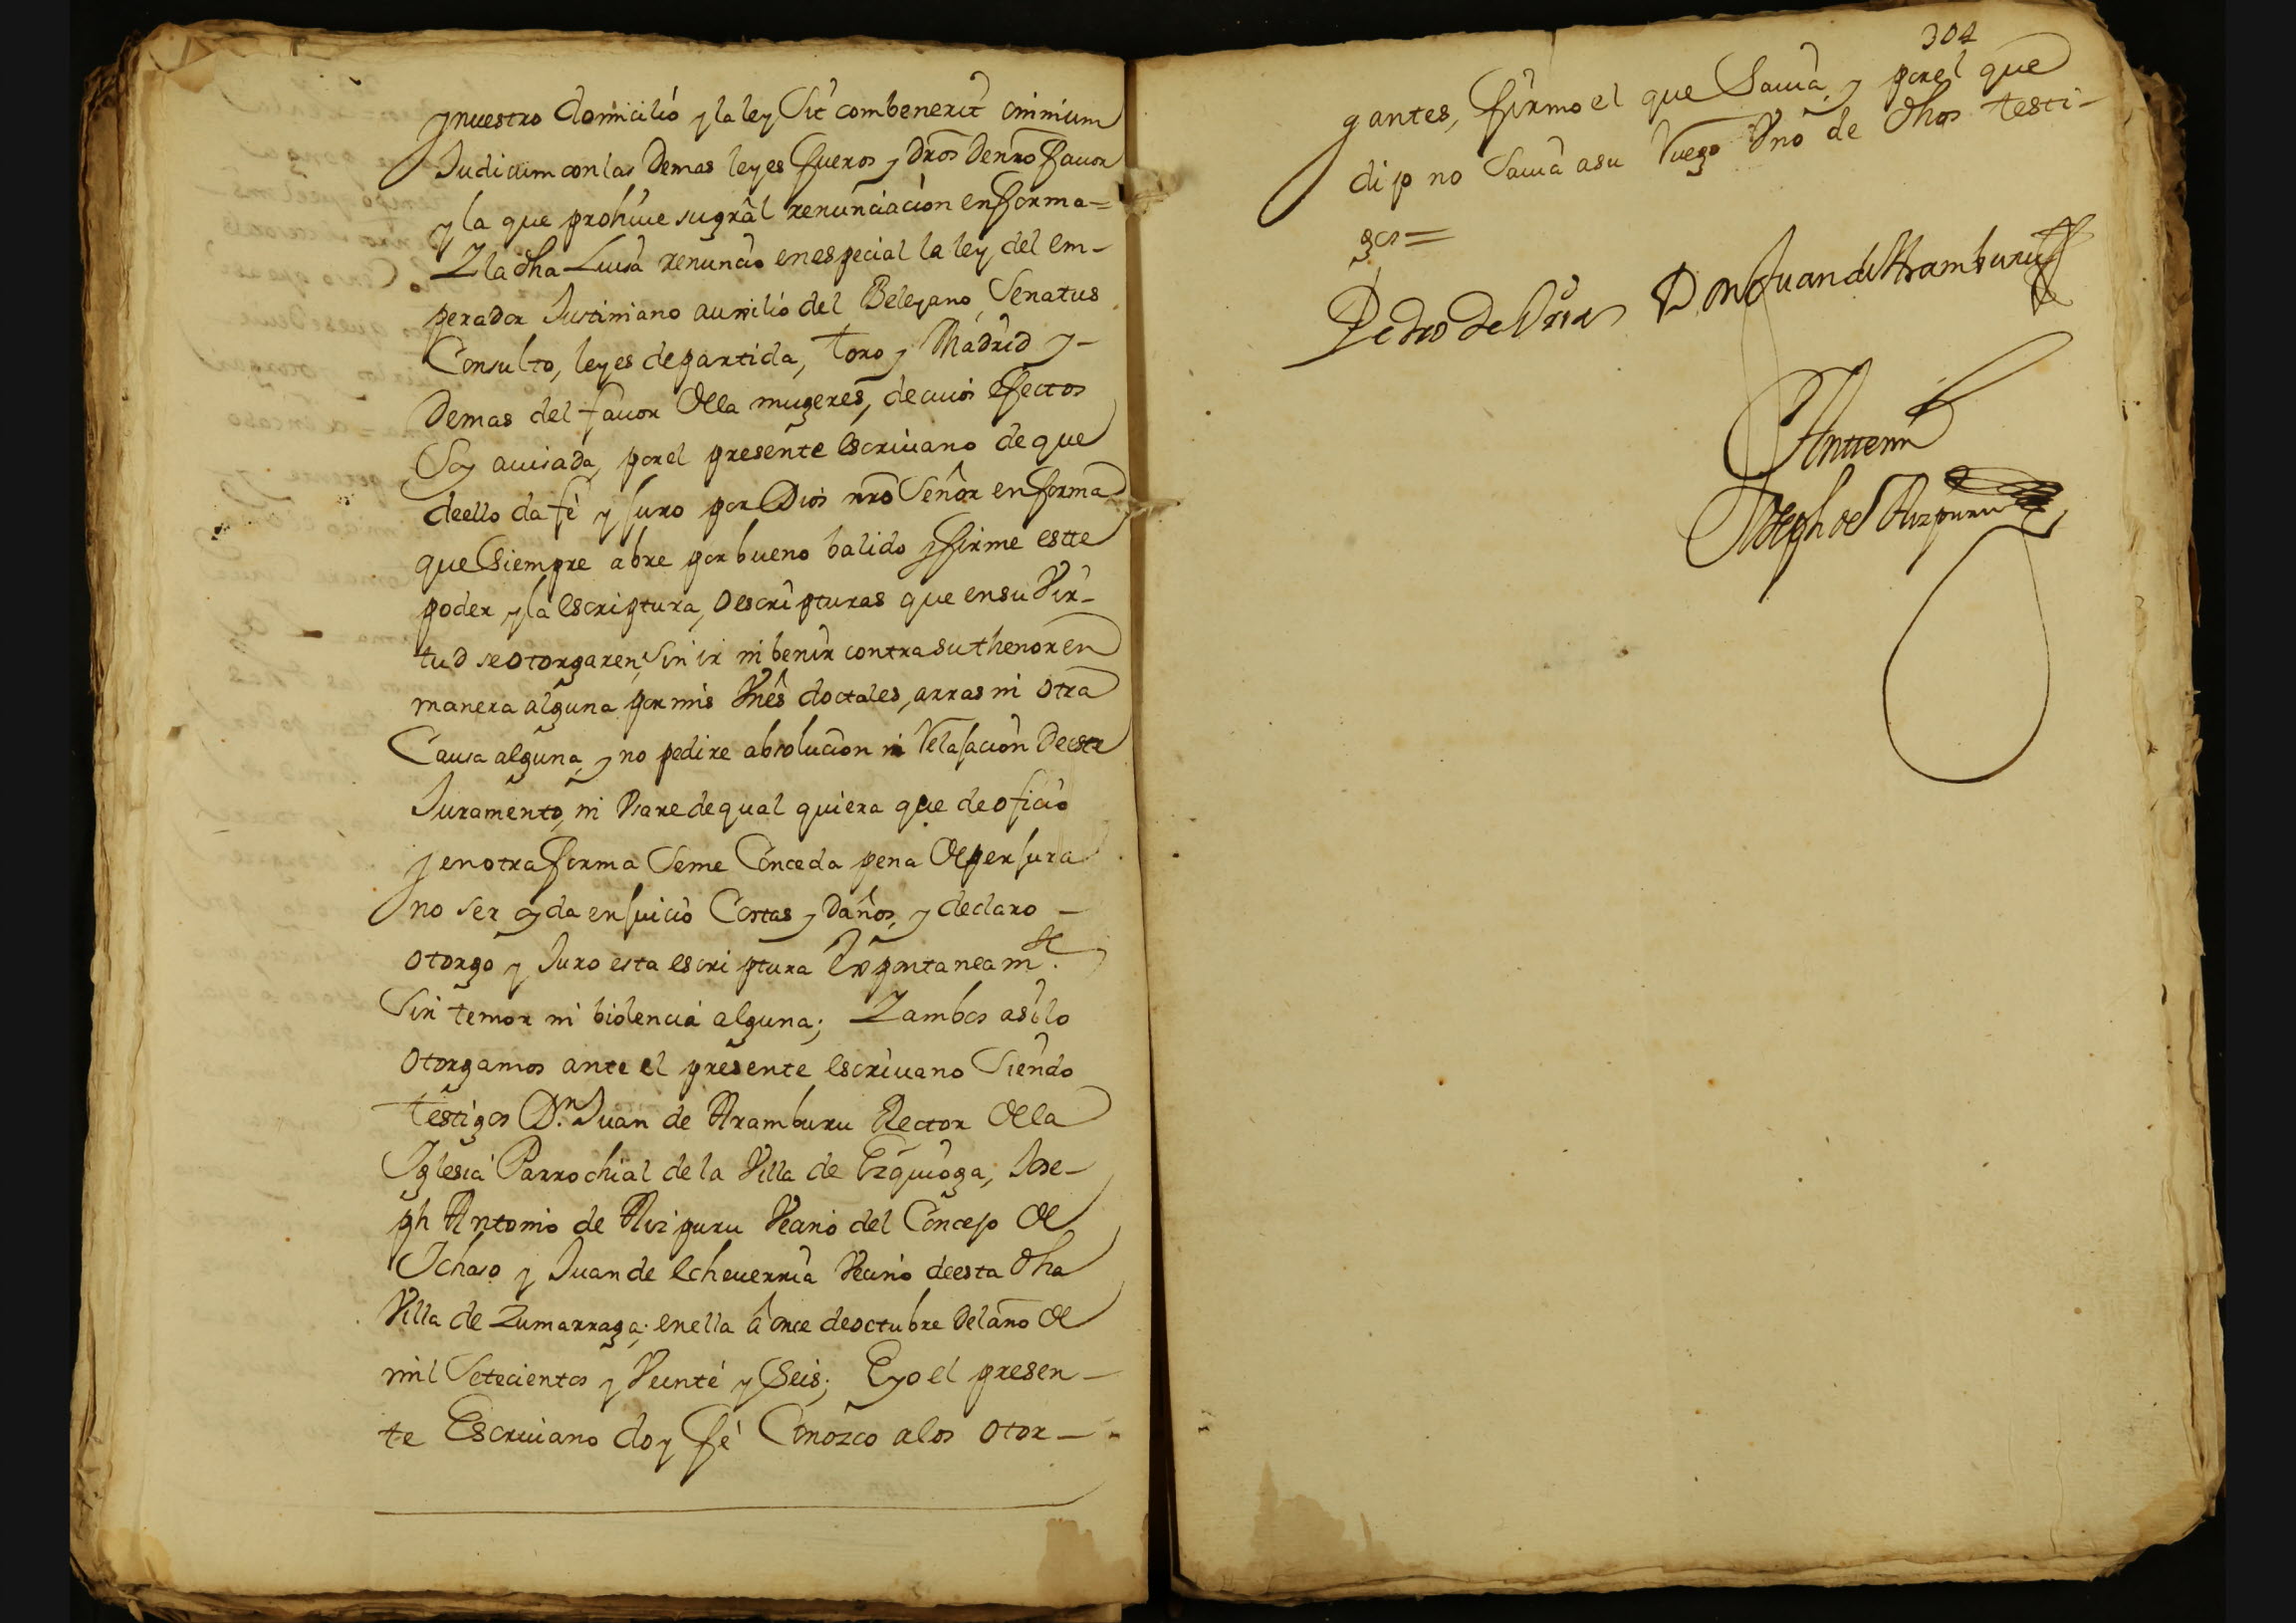 y nuestro domicilio y la ley Sit combenerit omnium
Judicum con las Demas leyes fueros y dros de nro favor
y la que prohiue su gral renunciacion en forma =
Y la dha Luisa renuncio en especial la ley del em-
perador Justiniano auxilio del Beleyano, Senatus
Consulto, leyes de partida, toro y Madrid y -
Demas del favor de la mugeres, de cuios efectos
Soy auisada, por el presente escriuano de que
de ello da fè y Juro por Dios nro Señor en forma
que Siempre abre por bueno balido y firme estte
poder y la escriptura, o escripturas que en su Vir-
tud se otorgaren, Sin ir ni benir contra su thenor en
manera alguna por mis Vnes doctales, arras ni otra
Causa alguna, y no pedire absolucion ni Relajacion de este
Juramento, ni Vsare de qual quiera que de oficio
y en otra forma Seme Conceda pena de perjura
no ser oyda en juicio Costas y Daños, y declaro -
otorgo y Juro esta escriptura Expontaneamte.
Sin temor ni biolencia alguna; Y ambos asilo
otorgamos ante el presente escriuano Siendo
testigos Dn. Juan de Aramburu Rector de la
Iglesia Parrochial de la Villa de Ezquioga, Jose-
ph Antonio de Aizpuru Vecino del Concejo de
Ichaso y Juan de Echeuerria Vecino de esta dha
Villa de Zumarraga; en ella â once de octubre del año de
mil Setecientos y Veinte y Seis; E yo el presen-
te Escriuano doy fè Conozco a los otor-
304
gantes, firmo el que Sauia, y por el que
dijo no Sauia a su Ruego Vno de dhos testi-
gos =
Pedro de Vria Don Juan de Aramburu
Antte mi
Joseph de Aizpuru